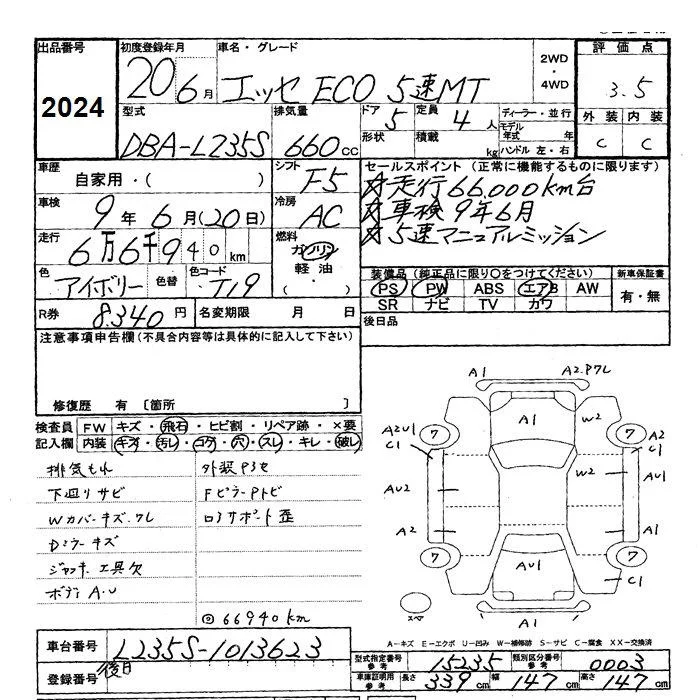 出品番号 初度登録年月 車名・グレード 2WD・4WD 評価点
2024 20 6月 エッセ ECO 5速MT 3.5
型式 排気量 ドア 定員 ディーラー・並行 外装 内装
DBA-L235S 660cc 5 4人 C C
形状 積載 kg モデル年式 年
ハンドル 左・右
車歴 シフト セールスポイント (正常に機能するものに限ります)
自家用・( ) F5 ☆走行66,000km台
車検 冷房 ☆車検 9年6月
9年6月(20日) AC ☆5速マニュアルミッション
走行 燃料
6万6千940km ガソリン
軽油
・( )
色 色替 色コード 装備品 (純正品に限り○をつけてください) 新車保証書
アイボリー T19 PS PW ABS エアB AW 有・無
SR ナビ TV カワ
R券 8,340円 名変期限 月 日 後日品
注意事項申告欄(不具合内容等は具体的に記入して下さい)
修復歴 有 [箇所 ]
検査員 FW キズ・飛石・ヒビ割・リペア跡・×要
記入欄 内装 キズ・汚レ・コゲ・穴・スレ・キレ・破レ
排気もれ 外装Pヨセ
下廻りサビ FピラーPトビ
Wカバーキズ.ワレ ロアサポート歪
Dミラーキズ
ジャッキ 工具欠
ボディ A.U
◎66940km
A1 A2.Pワレ
A1 W2
A2U1 7 7 A2
C1 C1
AU2 W2 AU1
A2 A1
7 7
AU1 C1
スペア A1
A-キズ E-エクボ U-凹み W-補修跡 S-サビ C-腐食 XX-交換済
車台番号 L235S-1013623
登録番号 後日
型式指定番号 参考 15235 類別区分番号 参考 0003
車庫証明用 参考 長さ 339cm 幅 147cm 高さ 147cm